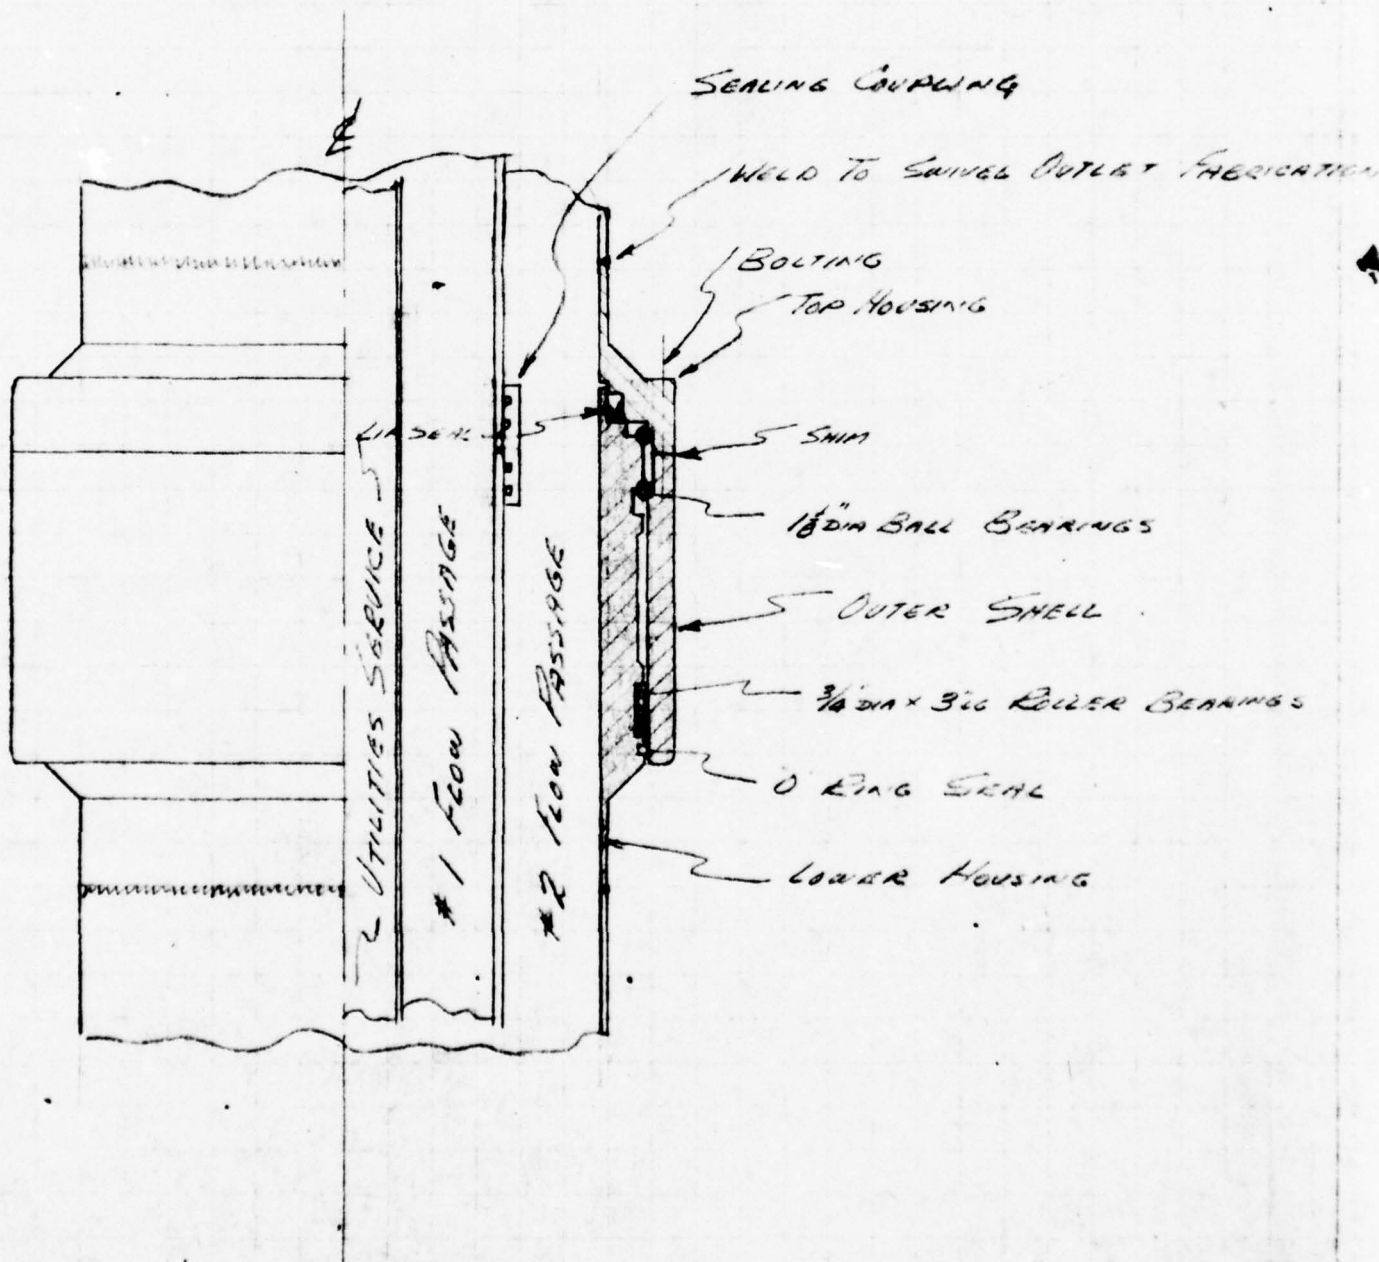 ℄
SEALING COUPLING
WELD TO SWIVEL OUTLET FABRICATION
BOLTING
TOP HOUSING
LIP SEAL
SHIM
1⅛" DIA BALL BEARINGS
OUTER SHELL
¾ DIA × 3" LG ROLLER BEARINGS
O RING SEAL
LOWER HOUSING
UTILITIES SERVICE
# 1 FLOW PASSAGE
# 2 FLOW PASSAGE